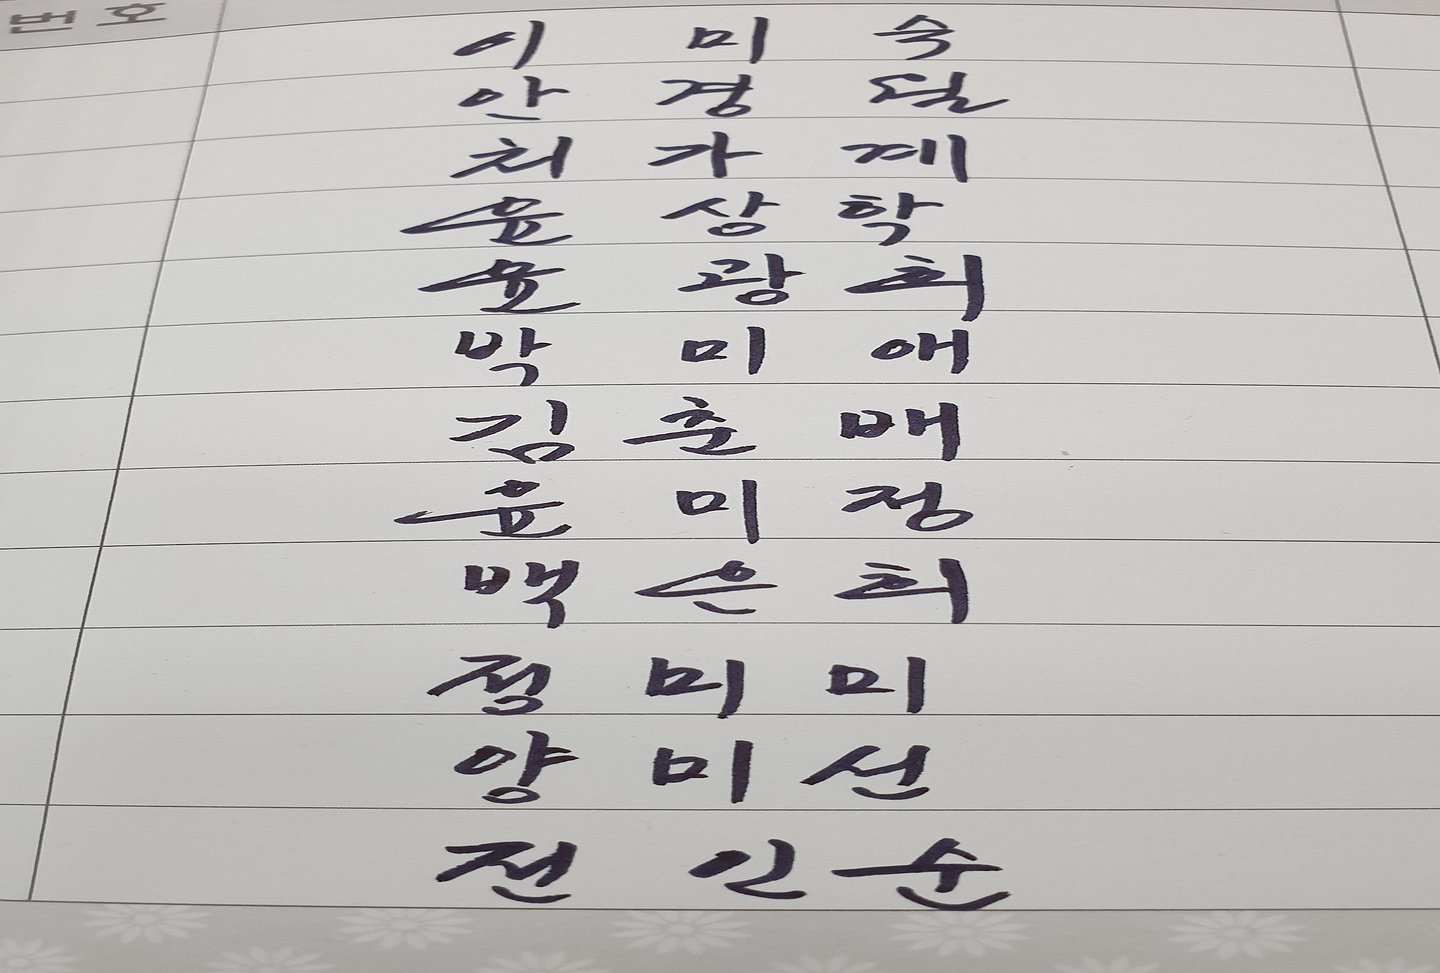 번 호
이 미 숙
안 경
최 가 계
윤 상 학
윤 광 희
박 미 애
김 춘 배
윤 미 정
백 은 희
정 미 미
양 미 선
전 인 순